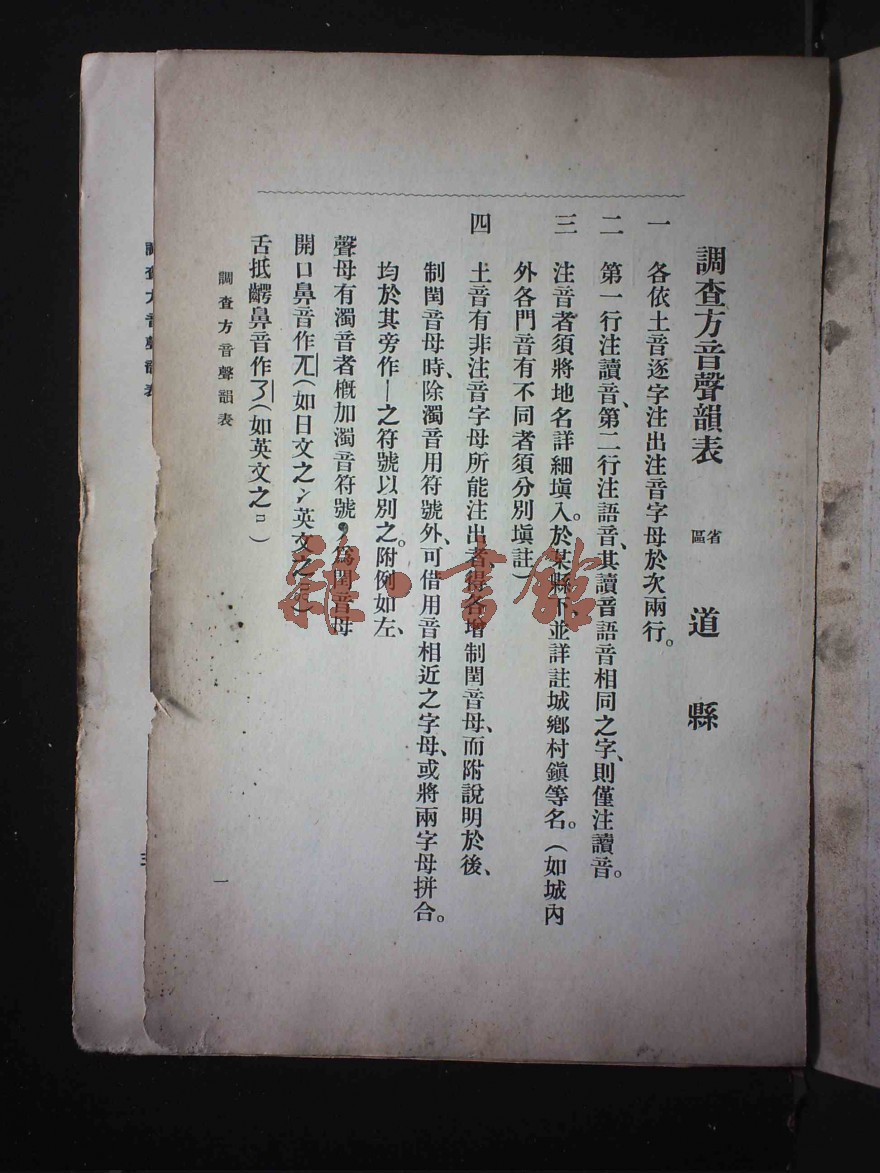 調查方音聲韻表 省區 道 縣
一 各依土音逐字注出注音字母於次兩行。
二 第一行注讀音、第二行注語音、其讀音語音相同之字、則僅注讀音。
三 注音者須將地名詳細塡入。於某縣下、並詳註城鄉村鎭等名。(如城內
外各門音有不同者須分別塡註)
四 土音有非注音字母所能注出者、得各增制閏音母、而附說明於後、
制閏音母時、除濁音用符號外、可借用音相近之字母、或將兩字母拼合。
均於其旁作丨之符號以別之。附例如左、
聲母有濁音者槪加濁音符號,爲閏音母
開口鼻音作兀|(如日文之ン英文之
舌抵齶鼻音作㇋|(如英文之
調查方音聲韻表
一
調查方音聲韻表
三
雜·書館